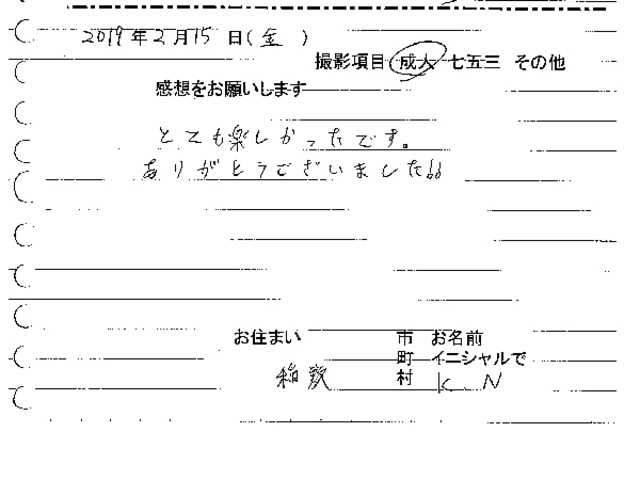 2019年2月15日(金)
撮影項目 成人 七五三 その他
感想をお願いします
とても楽しかったです。
ありがとうございました!!
お住まい 市 お名前
町 イニシャルで
稲敷 村 K.N